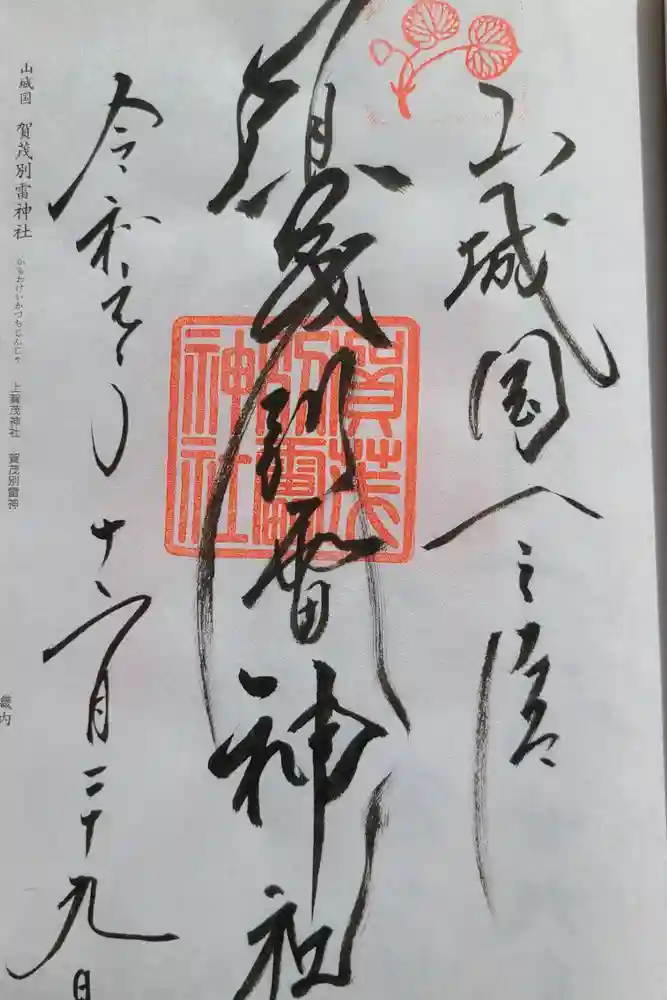 山城国一之宮
賀茂別雷神社
賀茂
別雷
神社
令和元年十二月二十九日
山城国 賀茂別雷神社 かもわけいかづちじんじゃ 上賀茂神社 賀茂別雷神
畿内